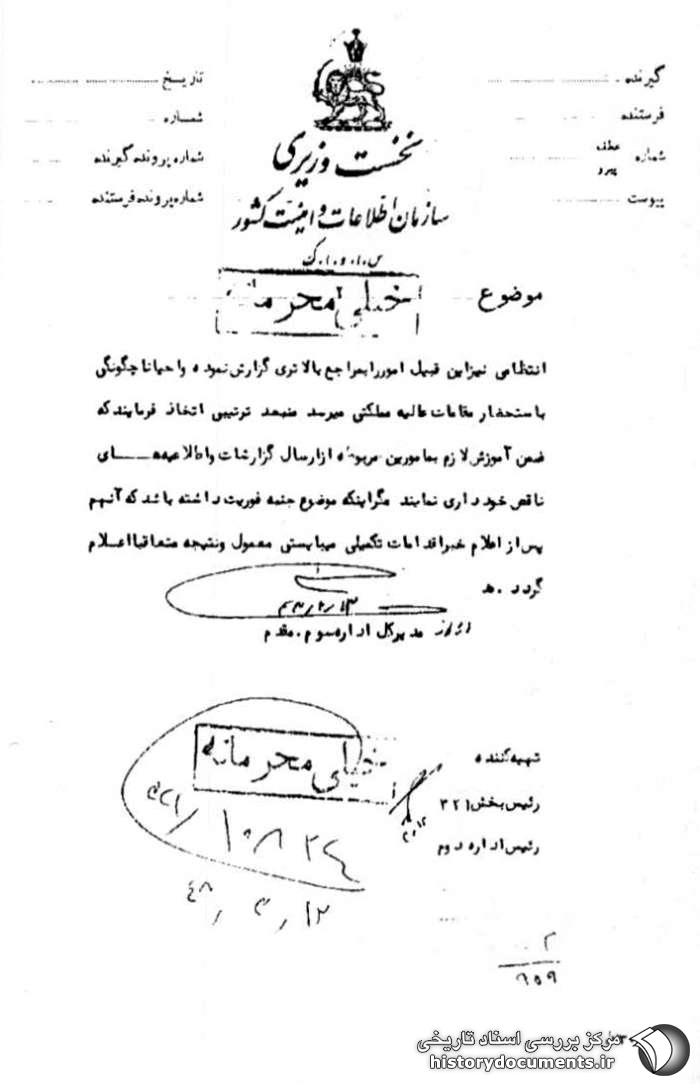 گیرنده
فرستنده
شماره عطف پیرو
پیوست
تاریخ
شماره
شماره پرونده گیرنده
شماره پرونده فرستنده
نخست وزیری
سازمان اطلاعات و امنیت کشور
س.ا.و.ا.ک
موضوع
خیلی محرمانه
انتظامی نیز این قبیل امور را بمراجع بالاتری گزارش نموده و احیانا چگونگی
باستحضار مقامات عالیه مملکتی میرسد منبعد ترتیبی اتخاذ فرمایند که
ضمن آموزش لازم بمامورین مربوطه از ارسال گزارشات و اطلاعیه‌های
ناقص خودداری نمایند مگر اینکه موضوع جنبه فوریت داشته باشد که آنهم
پس از اعلام خبر اقدامات تکمیلی میبایستی معمول و نتیجه متعاقبا اعلام
گردد . ه
مدیرکل اداره سوم . مقدم
تهیه کننده
رئیس بخش ۳۲۱
رئیس اداره دوم
خیلی محرمانه
۳۲۱/ ۱۰۸۲۴
۴۸/۳/۱۲
۲
۶۵۹
مرکز بررسی اسناد تاریخی
historydocuments.ir